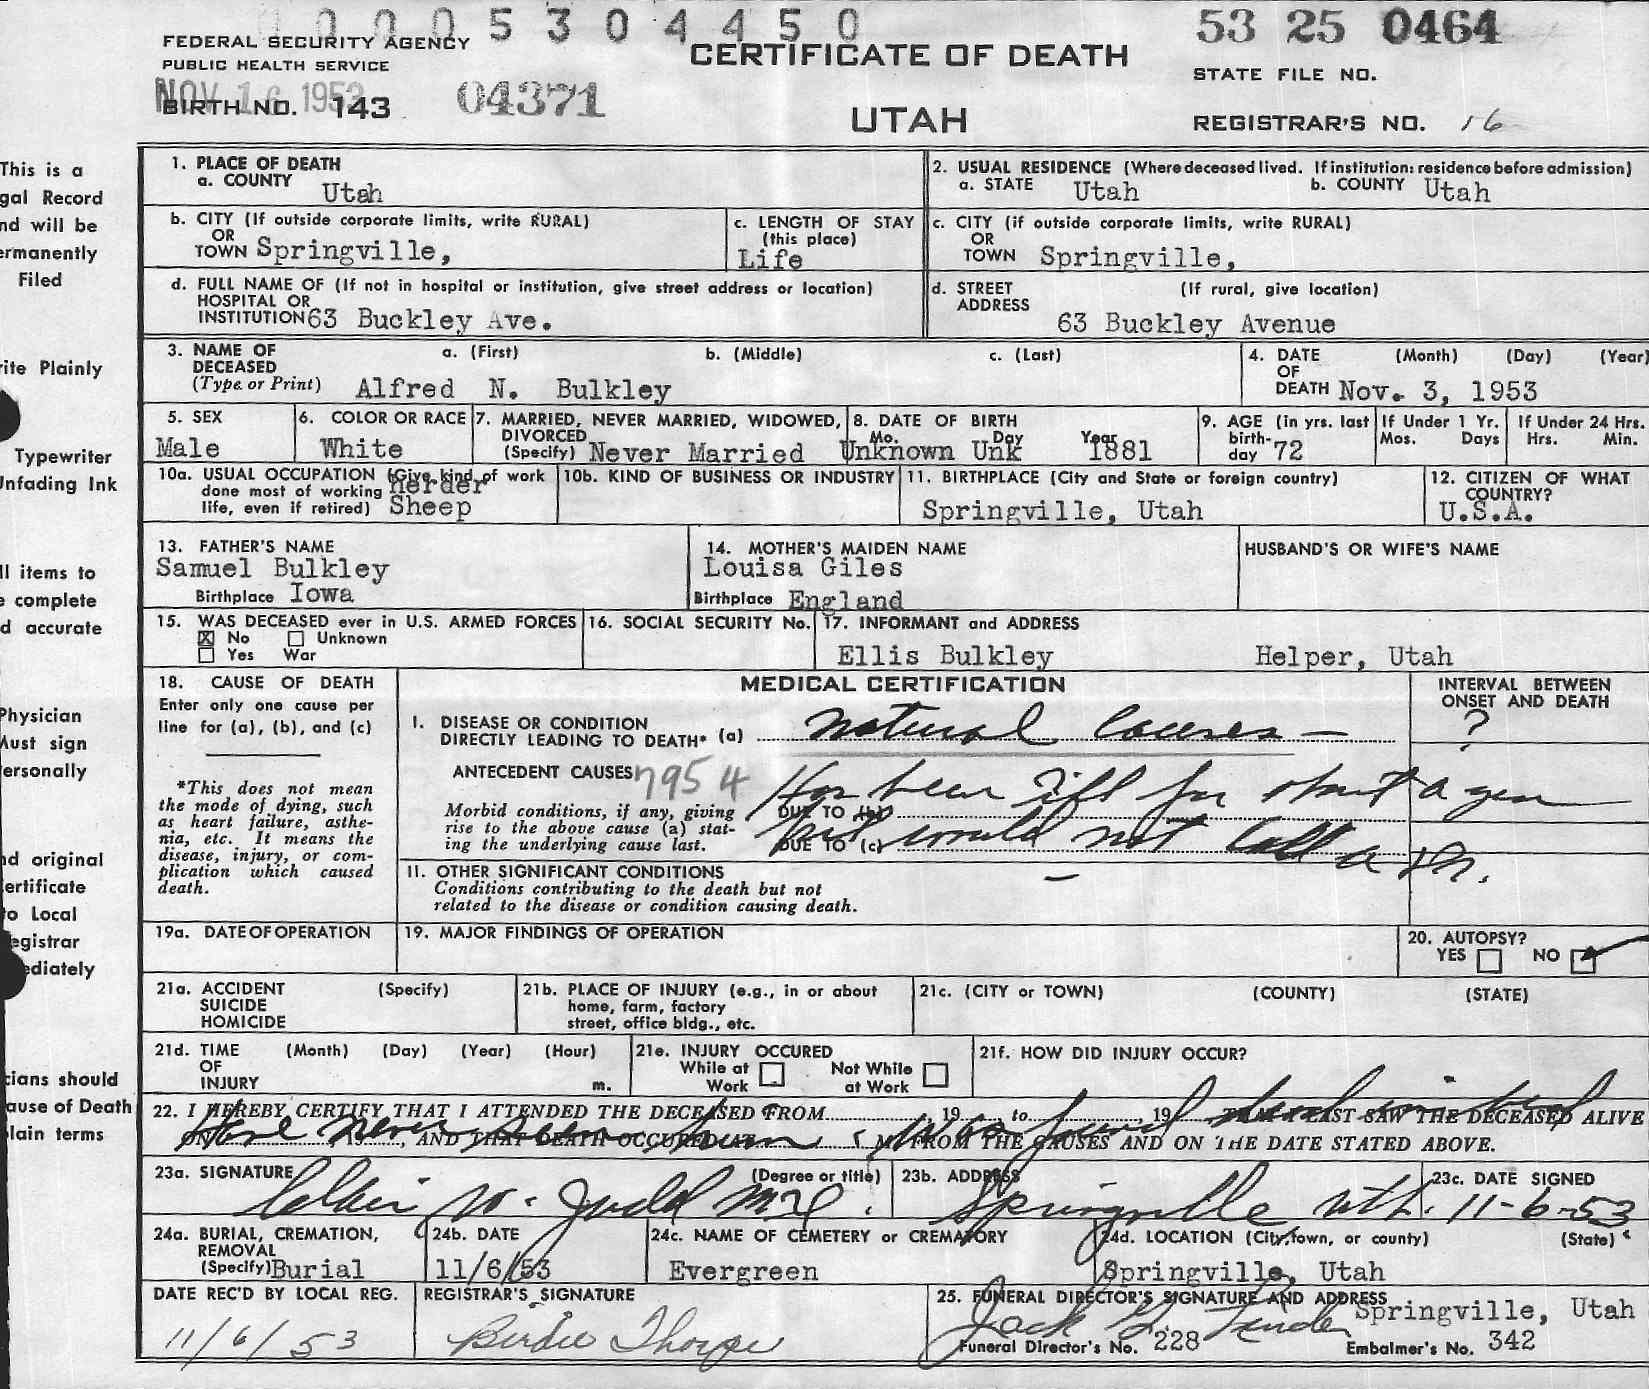 0 0 0 0 5 3 0 4 4 5 0
53 25 0464
FEDERAL SECURITY AGENCY
PUBLIC HEALTH SERVICE
CERTIFICATE OF DEATH
STATE FILE NO.
NOV 16 1953
BIRTH NO. 143 04371
UTAH
REGISTRAR'S NO. 16
This is a
gal Record
nd will be
ermanently
Filed
rite Plainly
Typewriter
Unfading Ink
ll items to
e complete
d accurate
Physician
Must sign
ersonally
nd original
ertificate
to Local
egistrar
ediately
cians should
ause of Death
plain terms
1. PLACE OF DEATH
a. COUNTY Utah
2. USUAL RESIDENCE (Where deceased lived. If institution: residence before admission)
a. STATE Utah b. COUNTY Utah
b. CITY (If outside corporate limits, write RURAL)
OR
TOWN Springville,
c. LENGTH OF STAY
(this place)
Life
c. CITY (if outside corporate limits, write RURAL)
OR
TOWN Springville,
d. FULL NAME OF (If not in hospital or institution, give street address or location)
HOSPITAL OR
INSTITUTION 63 Buckley Ave.
d. STREET (If rural, give location)
ADDRESS
63 Buckley Avenue
3. NAME OF a. (First) b. (Middle) c. (Last)
DECEASED
(Type or Print) Alfred N. Bulkley
4. DATE (Month) (Day) (Year)
OF
DEATH Nov. 3, 1953
5. SEX
Male
6. COLOR OR RACE
White
7. MARRIED, NEVER MARRIED, WIDOWED,
DIVORCED
(Specify) Never Married
8. DATE OF BIRTH
Mo. Day Year
Unknown Unk 1881
9. AGE (in yrs. last
birth-
day 72
If Under 1 Yr.
Mos. Days
If Under 24 Hrs.
Hrs. Min.
10a. USUAL OCCUPATION (Give kind of work
done most of working herder
life, even if retired) Sheep
10b. KIND OF BUSINESS OR INDUSTRY
11. BIRTHPLACE (City and State or foreign country)
Springville, Utah
12. CITIZEN OF WHAT
COUNTRY?
U.S.A.
13. FATHER'S NAME
Samuel Bulkley
Birthplace Iowa
14. MOTHER'S MAIDEN NAME
Louisa Giles
Birthplace England
HUSBAND'S OR WIFE'S NAME
15. WAS DECEASED ever in U.S. ARMED FORCES
X No Unknown
Yes War
16. SOCIAL SECURITY No.
17. INFORMANT and ADDRESS
Ellis Bulkley Helper, Utah
18. CAUSE OF DEATH
Enter only one cause per
line for (a), (b), and (c)
*This does not mean
the mode of dying, such
as heart failure, asthe-
nia, etc. It means the
disease, injury, or com-
plication which caused
death.
MEDICAL CERTIFICATION
INTERVAL BETWEEN
ONSET AND DEATH
I. DISEASE OR CONDITION
DIRECTLY LEADING TO DEATH* (a) natural causes — ?
ANTECEDENT CAUSES 7954
Morbid conditions, if any, giving
rise to the above cause (a) stat-
ing the underlying cause last.
DUE TO (b) Has been ill for about a year
DUE TO (c) but would not call a Dr.
II. OTHER SIGNIFICANT CONDITIONS
Conditions contributing to the death but not
related to the disease or condition causing death.
19a. DATE OF OPERATION
19. MAJOR FINDINGS OF OPERATION
20. AUTOPSY?
YES NO
21a. ACCIDENT (Specify)
SUICIDE
HOMICIDE
21b. PLACE OF INJURY (e.g., in or about
home, farm, factory
street, office bldg., etc.
21c. (CITY or TOWN) (COUNTY) (STATE)
21d. TIME (Month) (Day) (Year) (Hour)
OF
INJURY m.
21e. INJURY OCCURED
While at Work
Not While at Work
21f. HOW DID INJURY OCCUR?
22. I HEREBY CERTIFY THAT I ATTENDED THE DECEASED FROM , 19 to , 19 THAT I LAST SAW THE DECEASED ALIVE
ON , AND THAT DEATH OCCURED AT M. FROM THE CAUSES AND ON THE DATE STATED ABOVE.
Have never seen him. Was found dead in bed
23a. SIGNATURE (Degree or title)
W. Judd M.D.
23b. ADDRESS
Springville Utah.
23c. DATE SIGNED
11-6-53
24a. BURIAL, CREMATION,
REMOVAL
(Specify) Burial
24b. DATE
11/6/53
24c. NAME OF CEMETERY or CREMATORY
Evergreen
24d. LOCATION (City, town, or county) (State)
Springville, Utah
DATE REC'D BY LOCAL REG.
11/6/53
REGISTRAR'S SIGNATURE
Birdie Thorpe
25. FUNERAL DIRECTOR'S SIGNATURE AND ADDRESS
Jack Springville, Utah
Funeral Director's No. 228 Embalmer's No. 342